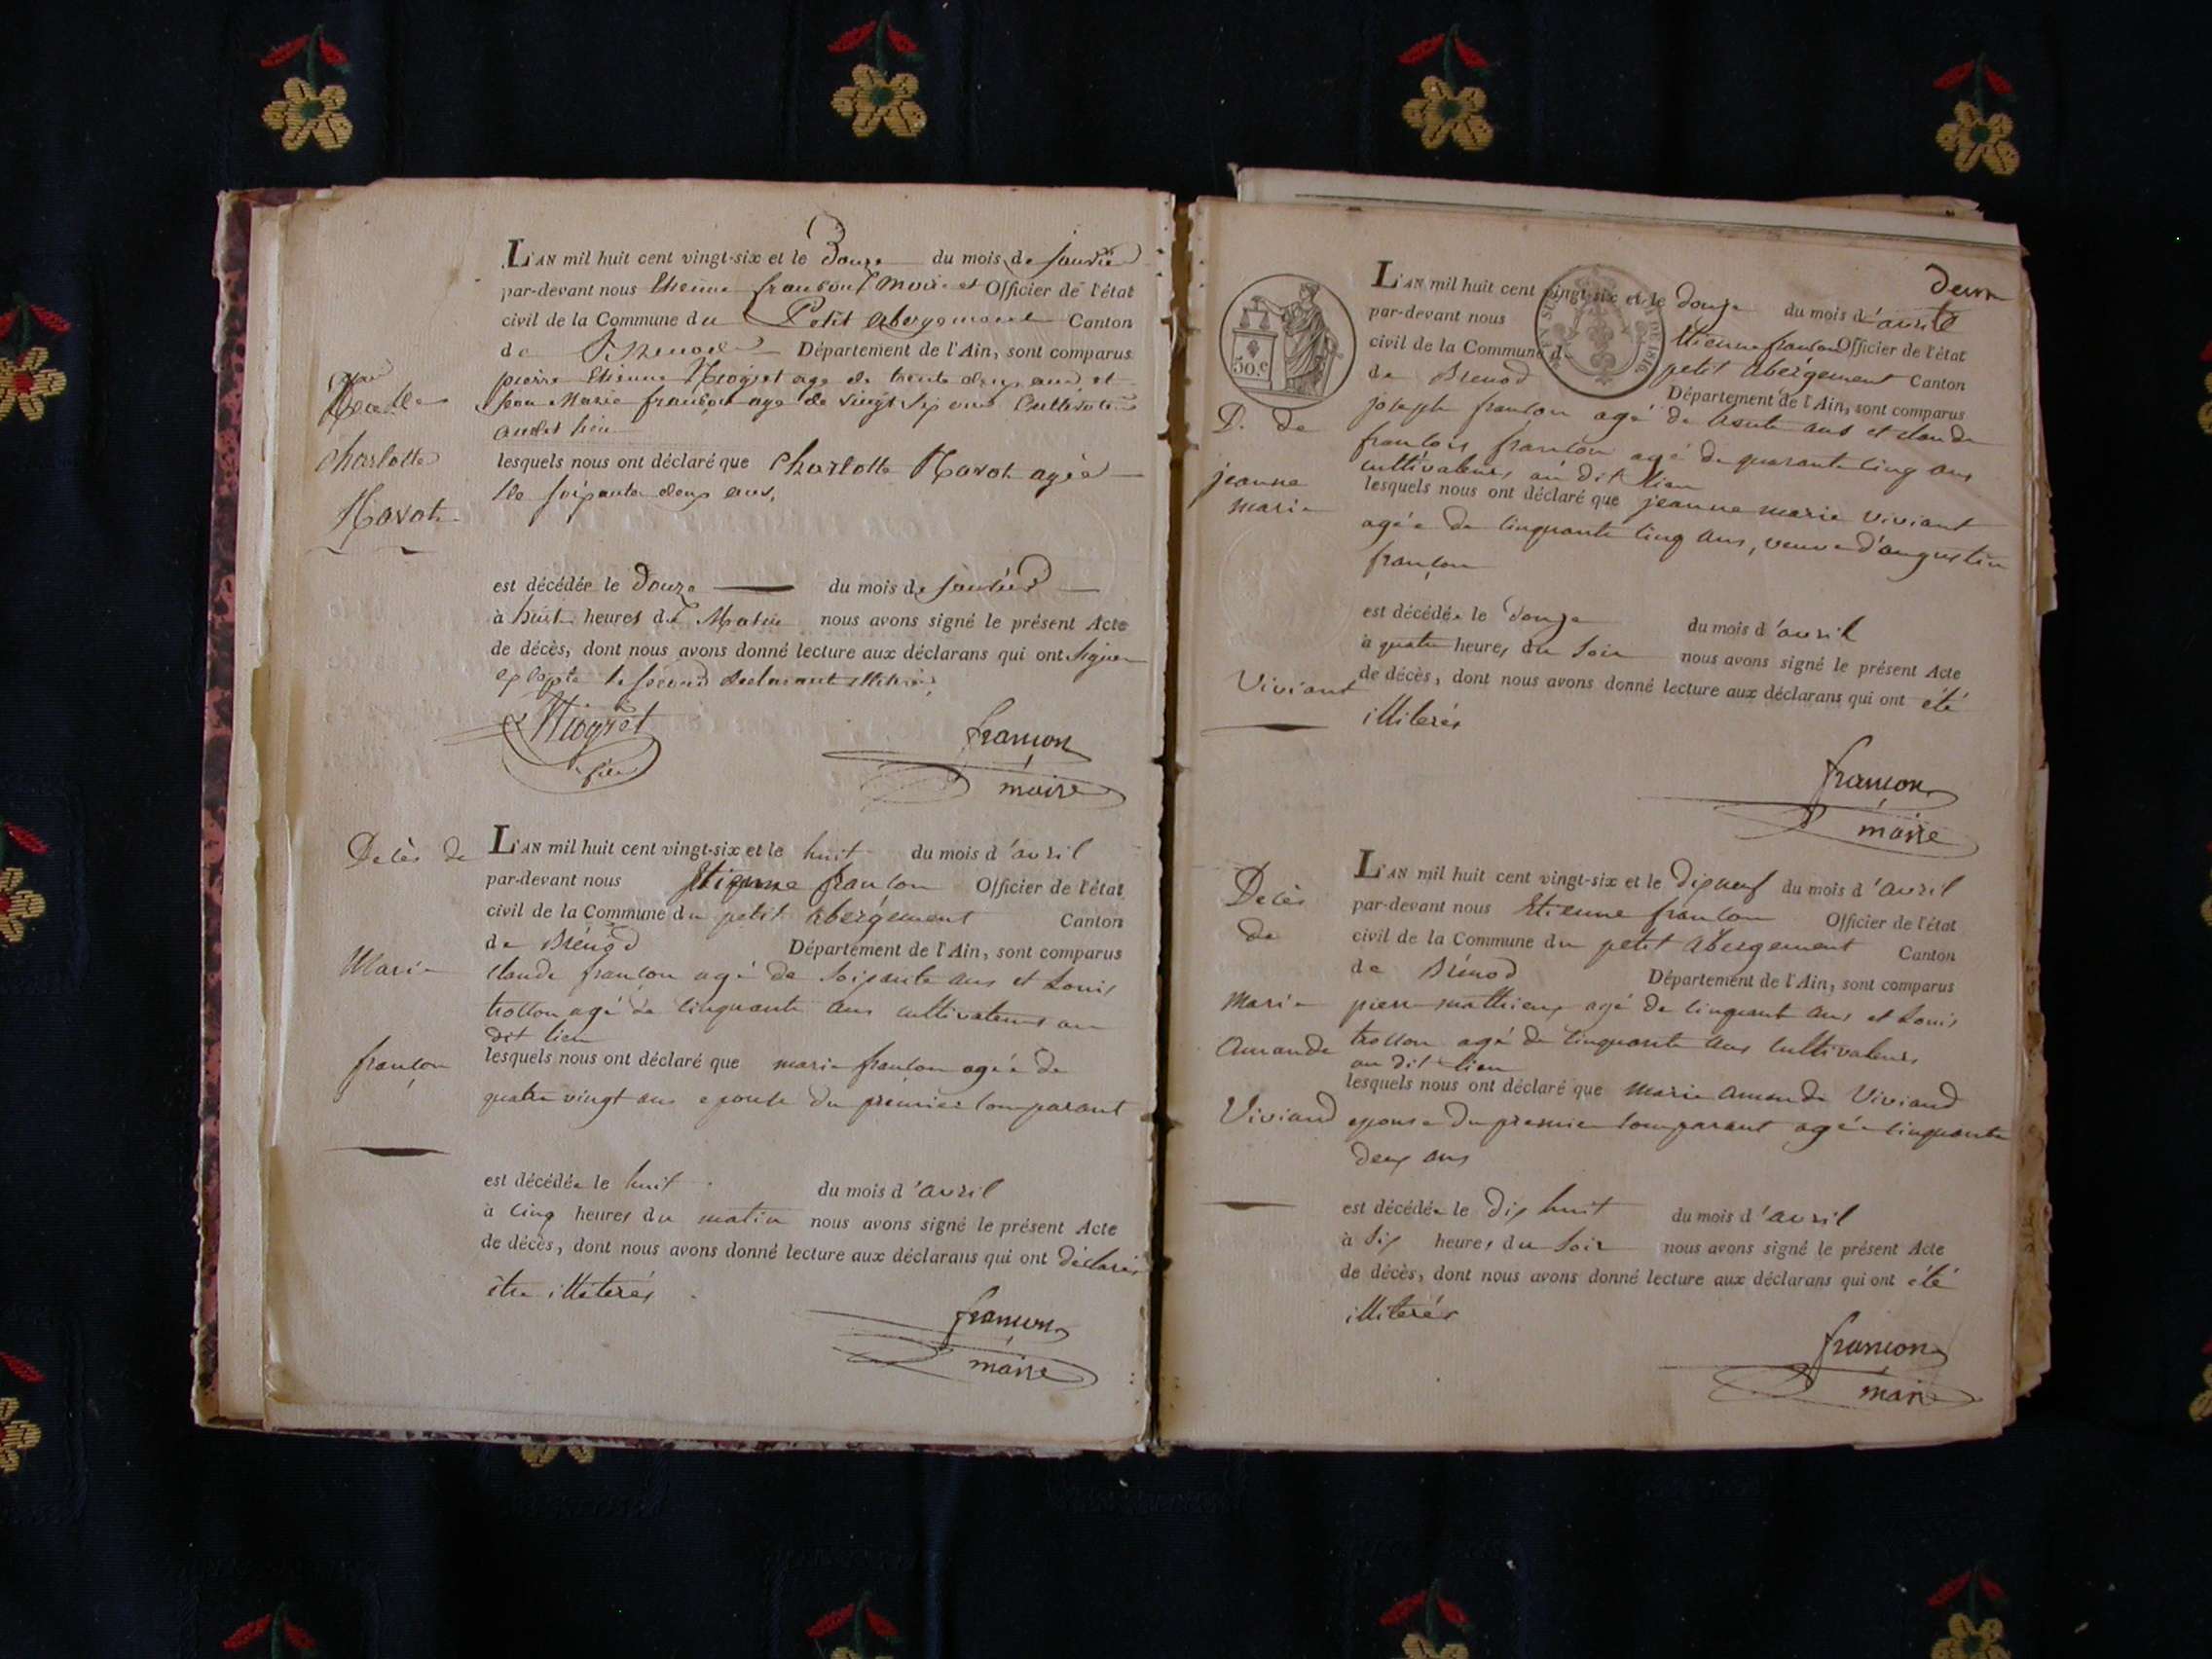 L'AN mil huit cent vingt-six et le Douze du mois de janvier
par-devant nous Etienne françont Maire et Officier de l'état
civil de la Commune du Petit abergement Canton
de Brenod Département de l'Ain, sont comparus
pierre Etienne Niogret age de trente deux ans et
jean Marie françon age de vingt six ans Cultivateurs
audit lieu
lesquels nous ont déclaré que Charlotte Navot agée
de soixante deux ans,
est décédée le Douze du mois de janvier
à huit heures du Matin nous avons signé le présent Acte
de décès, dont nous avons donné lecture aux déclarans qui ont signer
excepte le second declarant illitere
Niogret
françon
maire
Charlotte
Navot
Decès de
Marie
françon
L'AN mil huit cent vingt-six et le huit du mois d'avril
par-devant nous Etienne françon Officier de l'état
civil de la Commune du petit abergement Canton
de Brénod Département de l'Ain, sont comparus
claude françon agé de soixante ans et Louis
trollon agé de cinquante ans cultivateurs au
dit lieu
lesquels nous ont déclaré que marie françon agée de
quatre vingt ans epouse du premier comparant
est décédée le huit du mois d'avril
à cinq heures du matin nous avons signé le présent Acte
de décès, dont nous avons donné lecture aux déclarans qui ont déclarés
être illiterés
françon
maire
50.c
DE 1816
L'AN mil huit cent vingt-six et le douze du mois d'avril
par-devant nous Etienne françon Officier de l'état
civil de la Commune d petit abérgement Canton
de Brenod Département de l'Ain, sont comparus
joseph françon agé de trente ans et claude
françois françon agé de quarante cinq ans
cultivateurs au dit lieu
lesquels nous ont déclaré que jeanne marie viviant
agée de cinquante cinq ans, veuve d'augustin
françon
est décédée le douze du mois d'avril
à quatre heures du soir nous avons signé le présent Acte
de décès, dont nous avons donné lecture aux déclarans qui ont été
illiterés
françon
maire
D. de
jeanne
marie
Viviant
Decès
de
Marie
Amande
Viviand
L'AN mil huit cent vingt-six et le dixneuf du mois d'avril
par-devant nous Etienne françon Officier de l'état
civil de la Commune du petit abergement Canton
de Brénod Département de l'Ain, sont comparus
pierre mathieux agé de cinquant ans et Louis
trollon agé de cinquante ans cultivateurs
au dit lieu
lesquels nous ont déclaré que marie amande Viviand
epouse du premier comparant agée cinquante
deux ans
est décédée le dix huit du mois d'avril
à six heures du soir nous avons signé le présent Acte
de décès, dont nous avons donné lecture aux déclarans qui ont été
illiterés
françon
maire